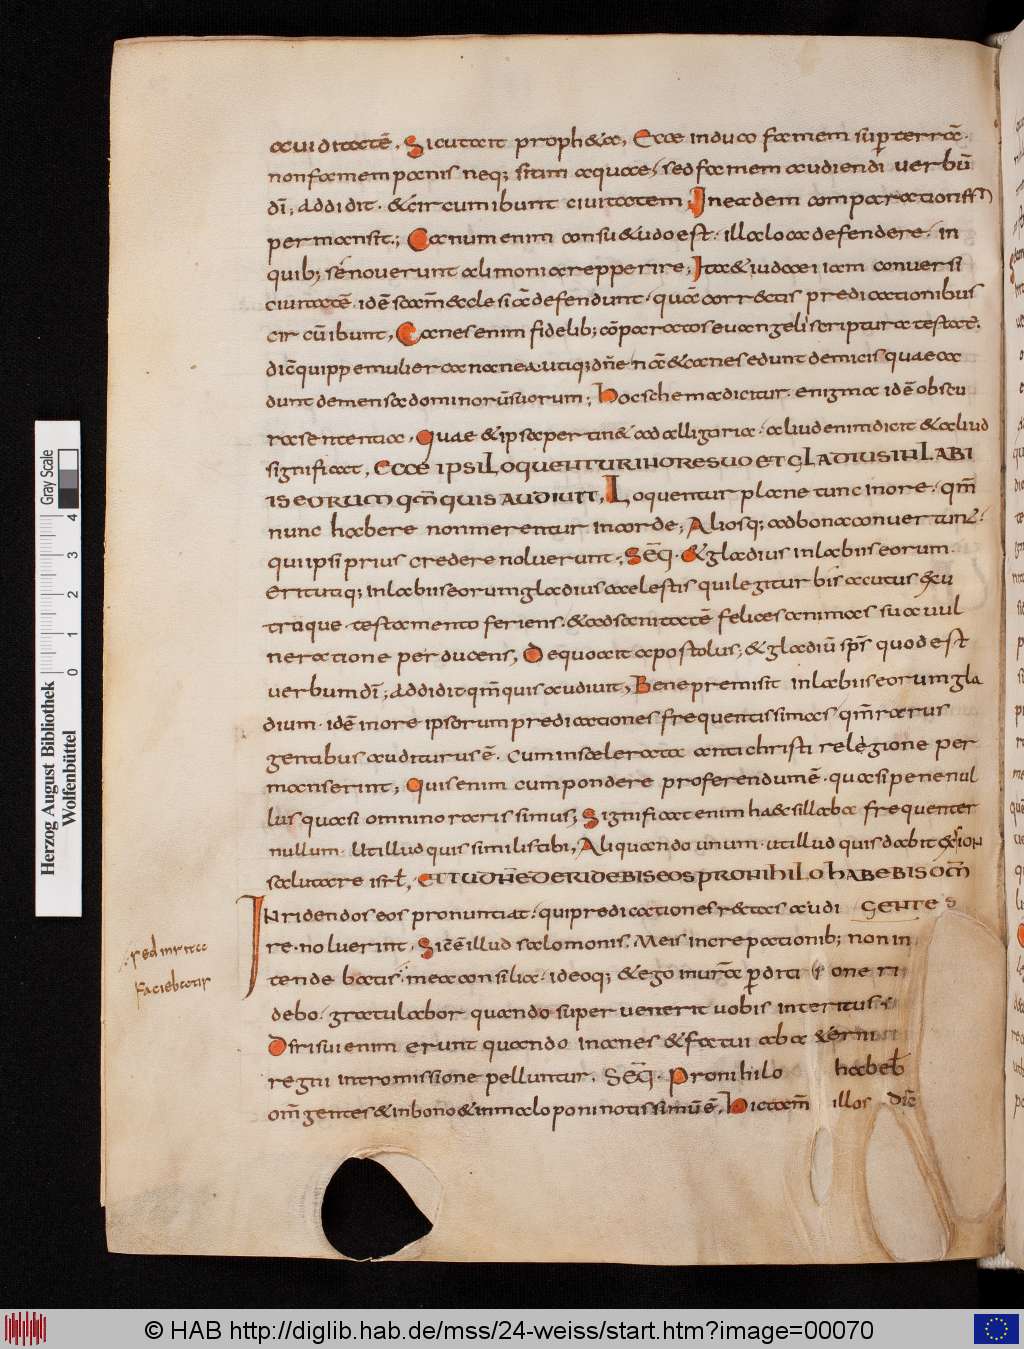 auiditatē. Sicut ait propheta, Ecce induco famem sup terrā.
non famem panis neq; sitim aquae, sed famem audiendi verbū
dī; Addidit. & circumibunt ciuitatem; In eadem comparatione
permansit; Canum enim consu&udo est. illa loca defendere. in
quib; se nouerunt alimonia repperire; Ita & iudaei iam conuersi
ciuitatē. idē scām ecclesiā defendunt. quā correctis predicationibus
circūibunt, Canes enim fidelib; cōparatos euangelii scriptura testat.
dic̄ quippe mulier cananea. utiq; dn̄e nā & canes edunt de micis quae ca
dunt de mensa dominorū suorum; Hoc schema dicitur. enigma idē obscu
ra sententia. Quae & ipsa pertin& ad alligoria. aliud enim dicit & aliud
significat, ECCE IPSI LOQUENTUR IN ORE SUO ET GLADIUS IN LABI
IS EORUM QM̄ QUIS AUDIUIT, Loquentur plane tunc in ore. qm̄
nunc habere non merentur in corde; Aliosq; ad bona conuertunt.
qui ipsi prius credere noluerunt; SEQ. & gladius in labiis eorum
erit utiq; in labiis eorum gladius caelestis qui legitur bis acutus ex u
troque testamento feriens. & ad sanitatē felices animas sua uul
neratione perducens, De quo ait apostolus; & gladiū sp̄s quod est
uerbum dī; Addidit qm̄ quis audiuit, Bene premisit in labiis eorum gla
dium. idē in ore ipsorum predicationes frequentissimas qm̄ rarus
gentibus auditurus ē. cum in scelerata antichristi relegione per
manserint, Quis enim cum pondere proferendum ē. quasi pene nul
lus quasi omnino rarissimus; Significat enim haec sillaba frequenter
nullum. Ut illud quis similis tibi, Aliquando unum. ut illud quis dabit ex sion
salutare isrl, ET TU DN̄E DERIDEBIS EOS PRO NIHILO HABEBIS OM̄
Inridendos eos pronuntiat. qui predicationes rectas audi GENTES
re noluerint. Sic ē illud salomonis. Meis increpationib; non in
tendebatis. mea consilia. ideoq; & ego in urā pditione ri
debo. gratulabor quando superuenerit uobis interitus.
Dīrisui enim erunt quando inanes & fatui ab aeterni
regni intromissione pelluntur. SEQ. Pro nihilo habeb
om̄ gentes & in bono & in malo poni notissimū ē, Hic tam̄ illos dic̄
red inrita
faciebatir
Herzog August Bibliothek
Wolfenbüttel
0 1 2 3 4
Gray Scale
© HAB http://diglib.hab.de/mss/24-weiss/start.htm?image=00070